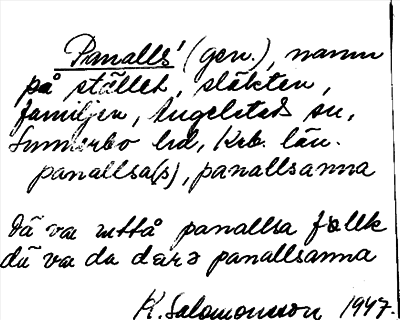 Panalls' (gen.), namn
på stället, släkten,
familjen, Angelstads sn,
Sunnerbo hd, Krb. län.
panallsa(s), panallsanna
dä va nttå panallsa follk
dä va da dära panallsanna
K. Salomonsson 1947.